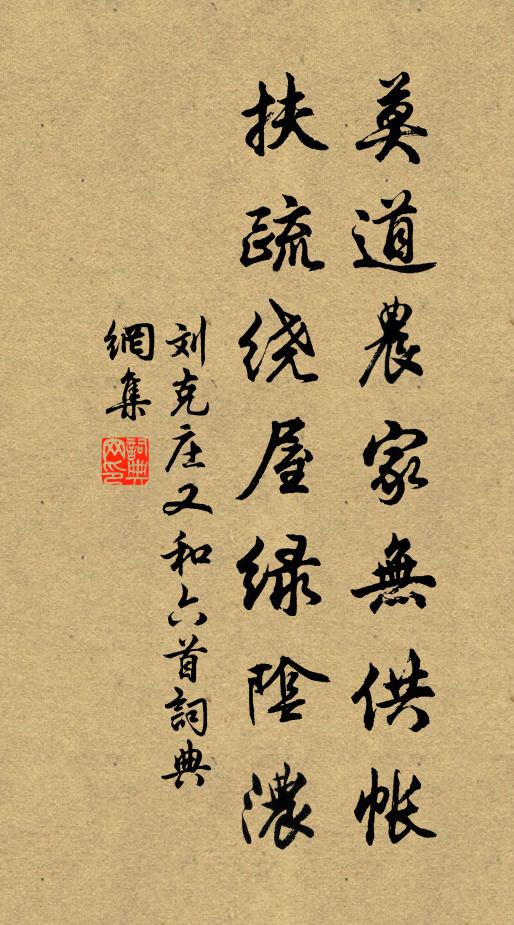 莫道農家無供帐
扶疏绕屋绿陰濃
刘克庄又和六首詞典
網集
詞典网印